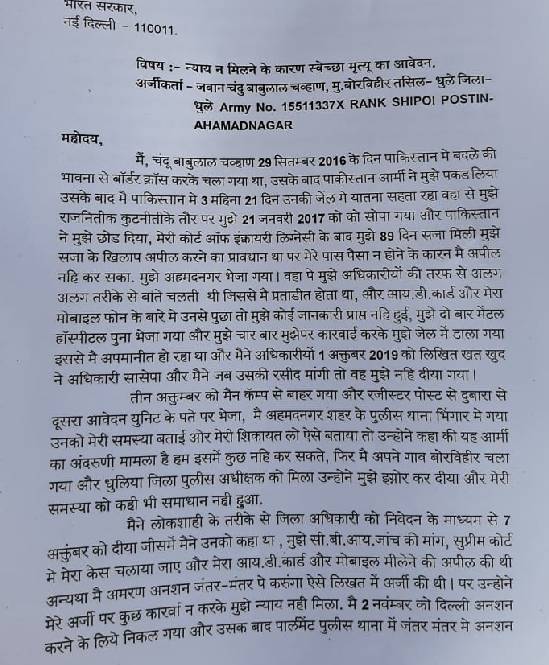 भारत सरकार,
नई दिल्ली - 110011.
विषय :- न्याय न मिलने के कारण स्वेच्छा मृत्यू का आवेदन.
अर्जीकर्ता - जवान चंदु बाबुलाल चव्हाण, मु.बोरविहीर तसिल- धुले जिला-
धुले Army No. 15511337X RANK SHIPOI POSTIN-
AHAMADNAGAR
महोदय,
में, चंदू बाबुलाल चव्हाण 29 सितम्बर 2016 के दिन पाकिस्तान मे बदले की
भावना से बॉर्डर क्रॉस करके चला गया था, उसके बाद पाकीस्तान आर्मी ने मुझे पकड लिया
उसके बाद मै पाकिस्तान मे 3 महिना 21 दिन उनकी जेल मे यातना सहता रहा वहा से मुझे
राजनितीक कुटनीतीके तौर पर मुझे 21 जनवरी 2017 को को सोपा गया और पाकिस्तान
ने मुझे छोड दिया, मेरी कोर्ट ऑफ इंक्वायरी लिग्नेसी के बाद मुझे 89 दिन सजा मिली मुझे
सजा के खिलाप अपील करने का प्रावधान था पर मेरे पास पैसा न होने के कारन मै अपील
नहि कर सका. मुझे अहमदनगर भेजा गया। वहा पे मुझे अधिकारीयों की तरफ से अलग
अलग तरीके से बांते चलती थी जिससे मै प्रताडीत होता था, और आय.डी.कार्ड और मेरा
मोबाइल फोन के बारे मे उनसे पुछा तो मुझे कोई जानकारी प्राप्त नहि हुई, मुझे दो बार मेंटल
हॉस्पीटल पुना भेजा गया और मुझे चार बार मुझेपर कारवाई करके मुझे जेल मे डाला गया
इससे मै अपमानीत हो रहा था और मैने अधिकारीयों 1 अक्तुबर 2019 को लिखित खत खुद
ने अधिकारी सासेपा और मैने जब उसकी रसीद मांगी तो वह मुझे नहि दीया गया।
तीन अक्तुम्बर को मैन कॅम्प से बाहर गया और रजीस्टर पोस्ट से दुबारा से
दूसरा आवेदन युनिट के पते पर भेजा, मै अहमदनगर शहर के पुलीस थाना भिंगार मे गया
उनको मेरी समस्या बताई और मेरी शिकायत लो ऐसे बताया तो उन्होने कहा की यह आर्मी
का अंदरुणी मामला है हम इसमें कुछ नहि कर सकते, फिर मै अपने गाव बोरविहीर चला
गया और धुलिया जिला पुलीस अधीक्षक को मिला उन्होने मुझे इग्नोर कर दीया और मेरी
समस्या को कही भी समाधान नही हुआ.
मैने लोकशाही के तरीके से जिला अधिकारी को निवेदन के माध्यम से 7
अक्तुंबर को दीया जीसमें मैने उनको कहा था , मुझे सी.बी.आय.जांच की मांग, सुप्रीम कोर्ट
मे मेरा केस चलाया जाए और मेरा आय.डी.कार्ड और मोबाइल मीलेने की अपील की थी
अन्यथा मै आमरण अनशन जंतर-मंतर पे करुंगा ऐसे लिखत में अर्जी की थी। पर उन्होने
मेरे अर्जी पर कुछ कारवां न करके मुझे न्याय नही मिला. मै 2 नवंम्बर को दिल्ली अनशन
करने के लिये निकल गया और उसक बाद पार्लमेंट पुलीस थाना में जंतर मंतर मे अनशन